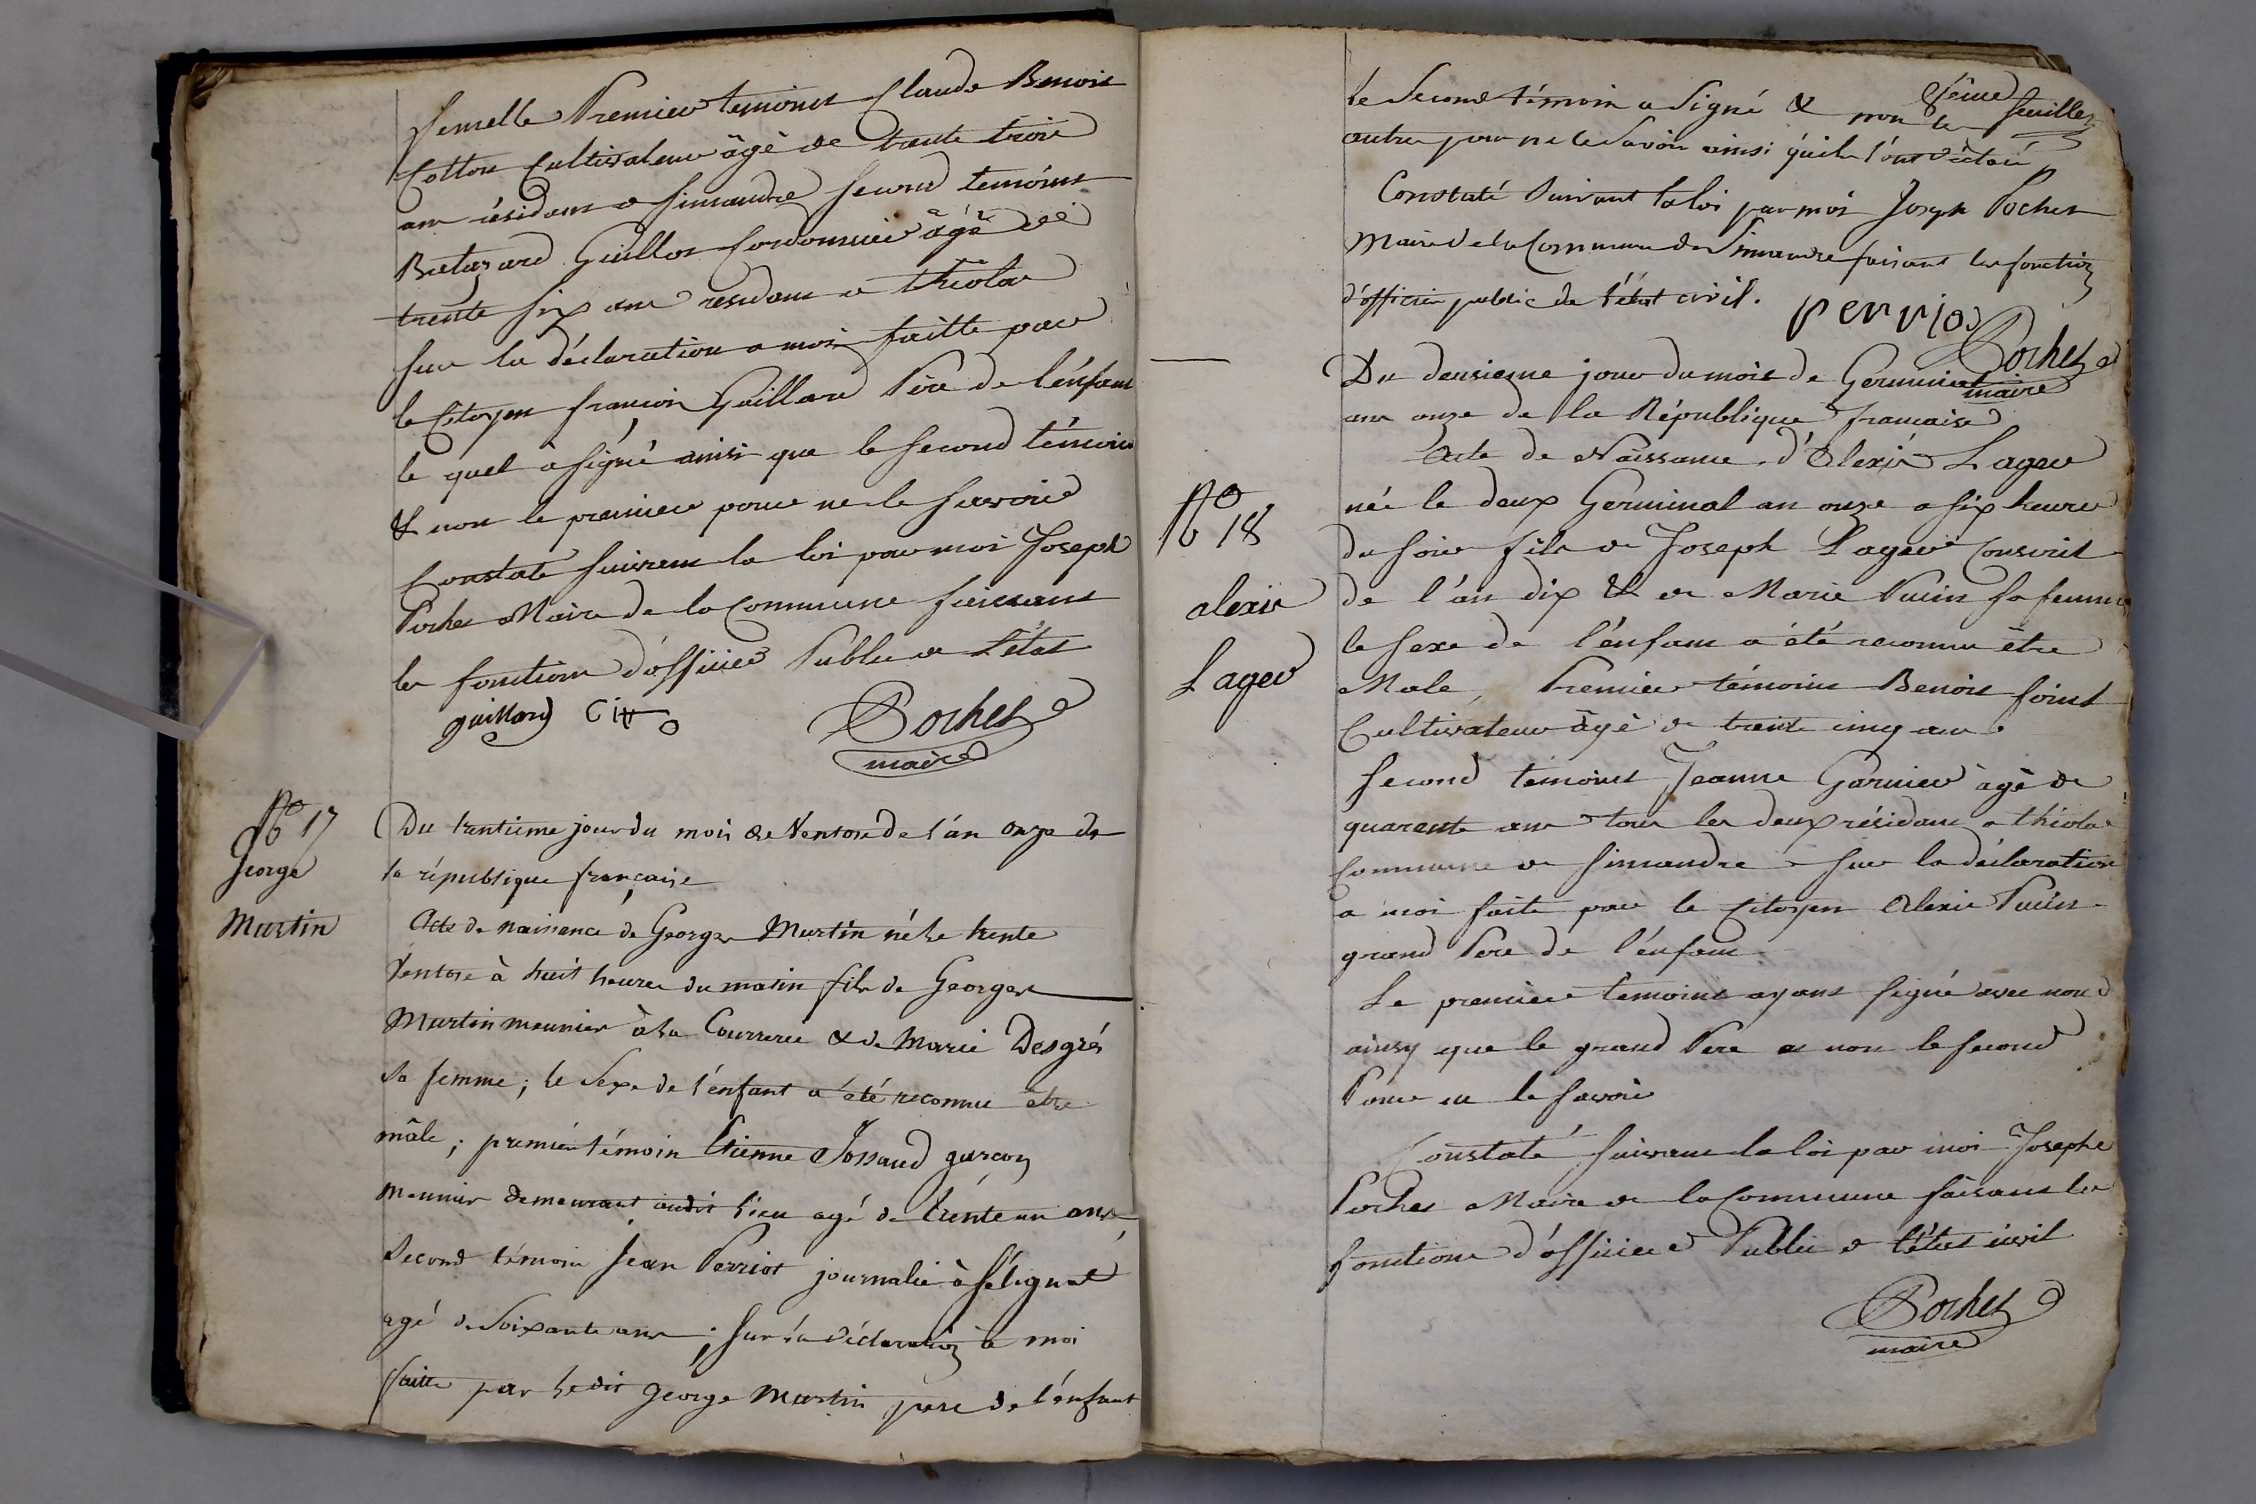 femelle Premier temoins Claude Benois
Cotton Cultivateur âgé de trente trois
ans résidans a simandre second temoins
Baltazard Guillot Cordonnier âgé de
trente six ans residans a thiola
sur la déclaration a moi faitte par
le Citoyen francois Gaillard Père de l'énfans
le quel à signé ainsi que le second témoin
& non le premier pour ne le savoir
Constaté suivans la loi par moi Joseph
Pochet Maire de la Commune faissans
les fonctions d'officier Public de L'état
gaillard Pochet
maire
No 17
George
Martin
Du trentième jour du mois de Ventose de l'an onze de
la république française
Acte de naissance de Georges Martin né le trente
Ventose à huit heures du matin fils de Georges
Martin meunier à la Courrerie & de Marie Desgrés
sa femme; le sexe de l'énfant a été reconnu être
mâle; premier témoin Etienne Jossaud garçon
meunier demeurant audit lieu agé de trente un ans
Second témoin Jean Perriot journalié à sélignat
agé de soixante ans; sur la déclaration à moi
faitte par ledit George Martin père de l'énfant
8ème feuillet
le Second témoin a signé & non les
autres pour ne le savoir ainsi qu'ils l'ont déclaré
Constaté suivant la loi par moi Joseph Pochet
Maire de la Commune de Simandre faisant les fonctions
d'officier public de l'état civil.
perrio Pochet
maire
Du deusieme jour du mois de Germinal
an onze de la République francaise
Acte de Naissance d'Alexis Lager
No 18
alexis
Lager
née le deux Germinal an onze a six heures
du soir fils de Joseph Lager Conscrit
de l'an dix & de Marie Puin sa femme
le sexe de l'énfans a été reconnu être
Male, Premier témoins Benois foint
Cultivateur âgé de trente cinq ans
second témoins Jeanne Garnier âgé de
quarente ans tous les deux résidans a thiola
Commune de simandre sur la déclaration
a moi faite par le Citoyen Alexis Puin
grand Pere de l'énfans
Le premier temoins ayans signé avec nous
ainsy que le grand Pere & non le second
Pour ne le savoir
Constaté suivans la loi par moi Josephe
Pochet Maire de la Commune faisans les
fonctions d'officier Public de l'état civil
Pochet
maire